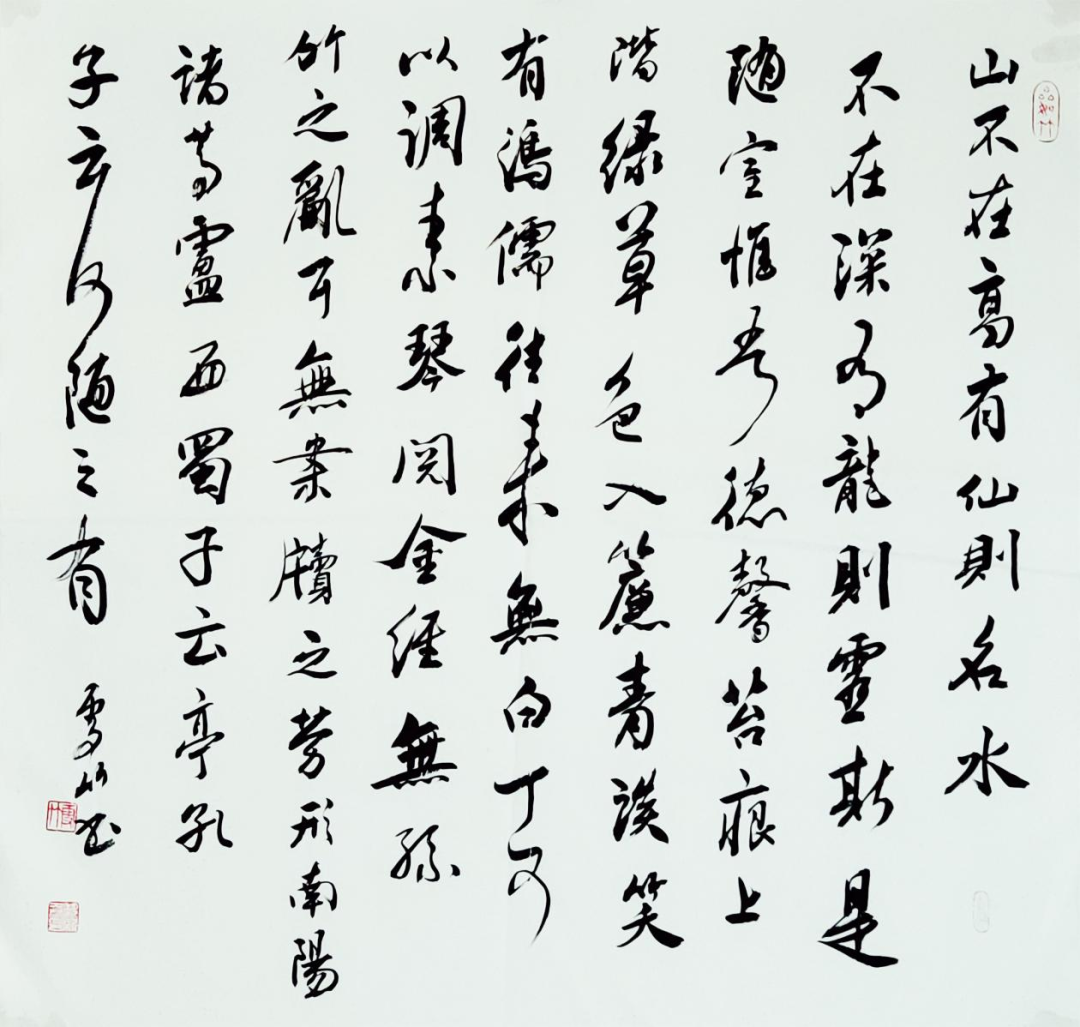 山不在高有仙則名水
不在深有龍則靈斯是
陋室惟吾德馨苔痕上
階緑草色入簾青談笑
有鴻儒往來無白丁可
以調素琴閱金經無絲
竹之亂耳無案牘之勞形南陽
諸葛盧西蜀子云亭孔
子云何陋之有
雪竹书